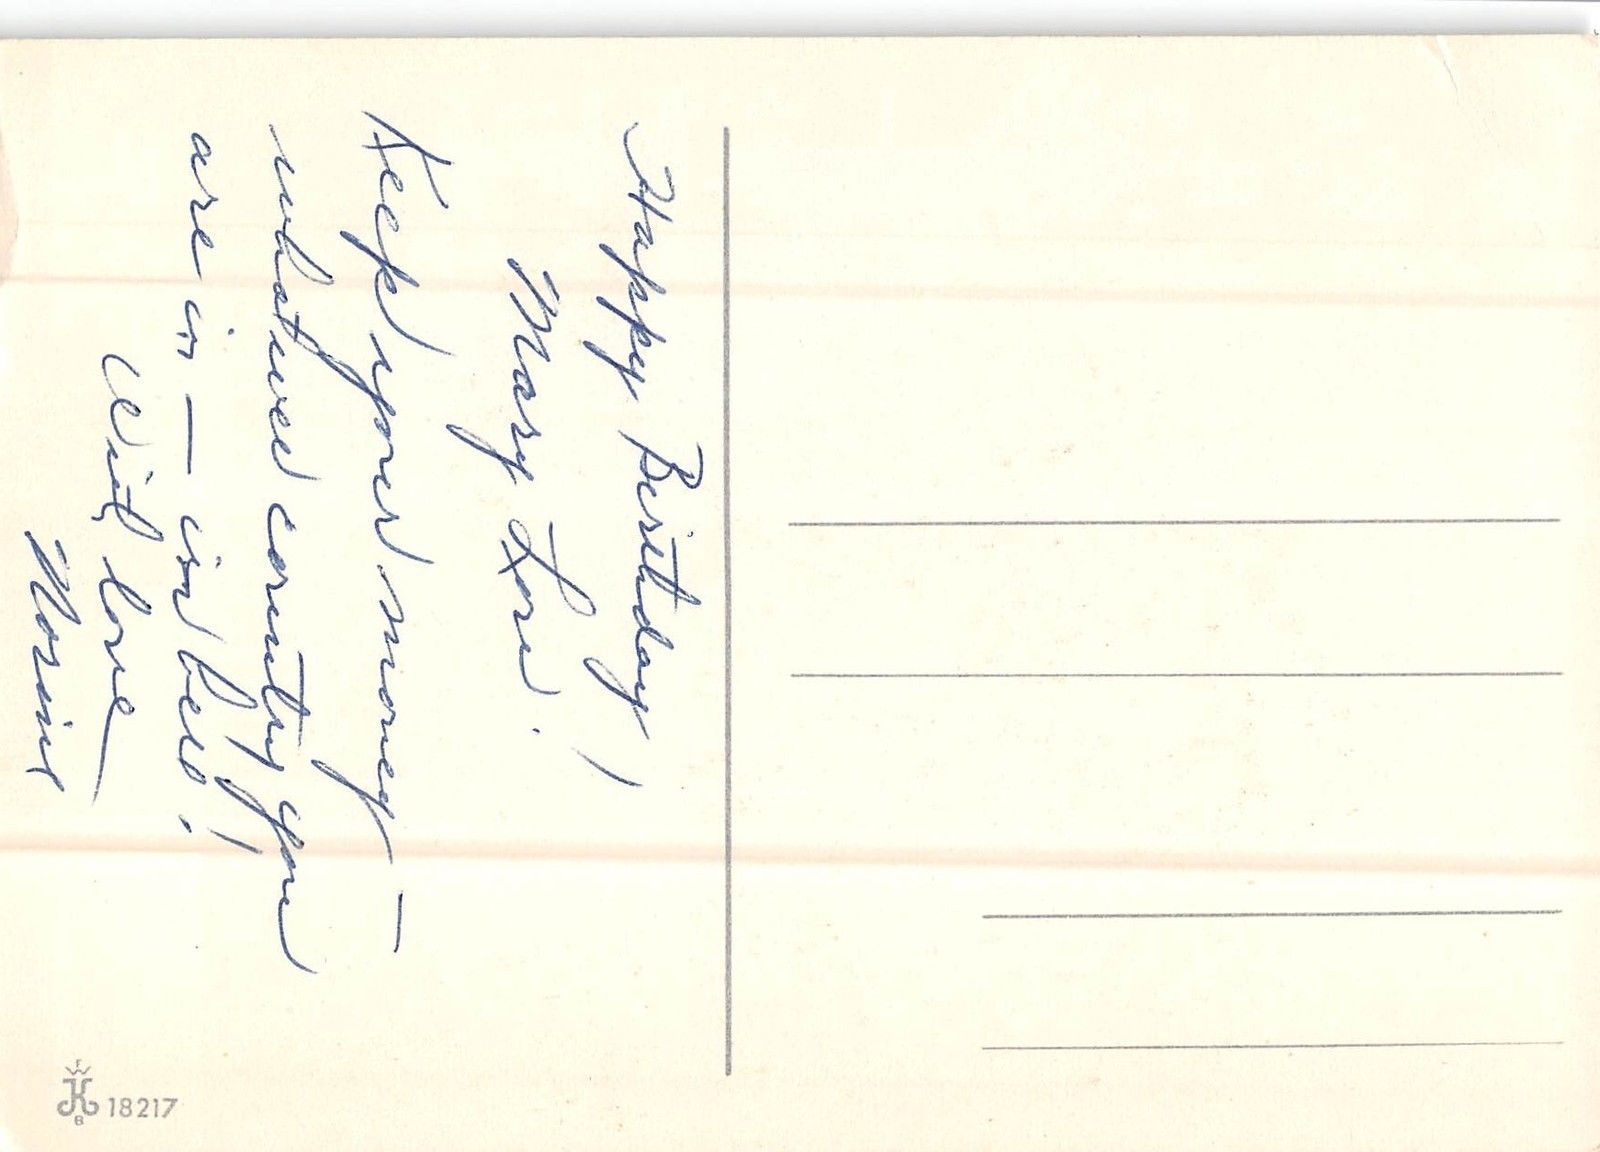 Happy Birthday!
Mary Lou.
Keep your money —
whatever country you
are in — in bed!
With love
Norine
18217